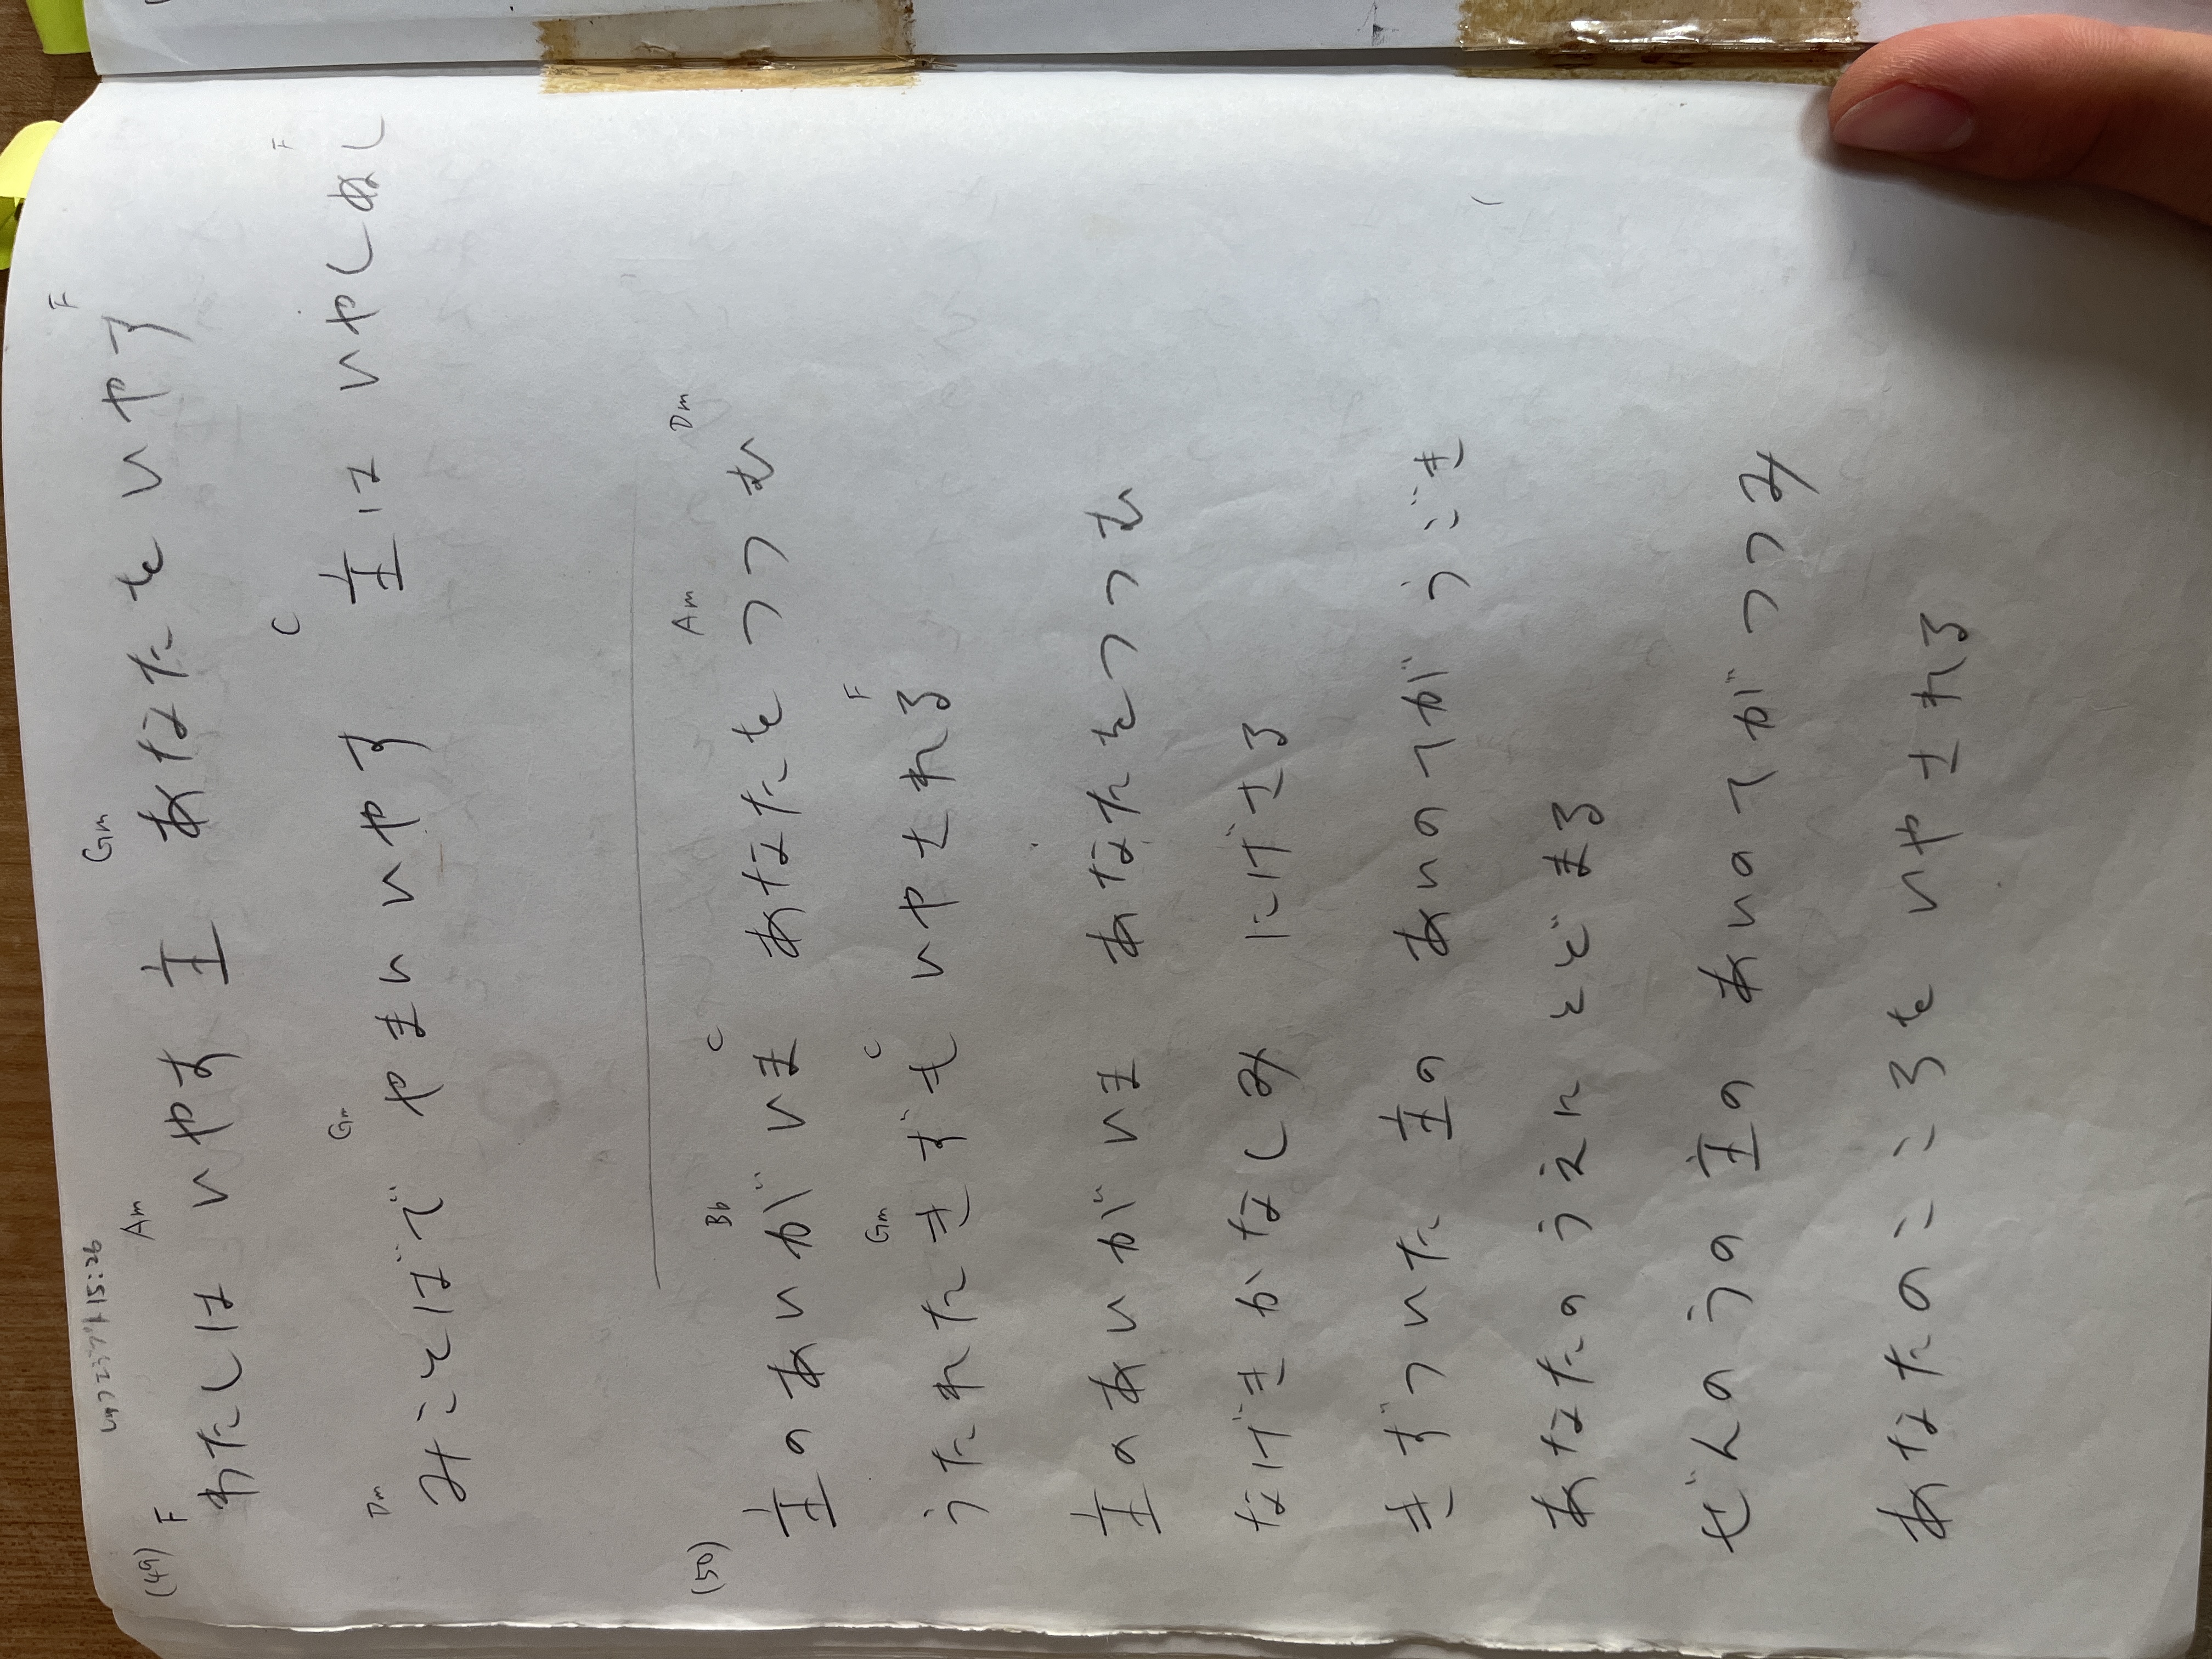 しゅつエジプト15:26
(49) F Am Gm F
わたしは いやす 主 あなたを いやす
Dm Gm C F
みことばで やまい いやす 主は いやしぬし
(50) Bb C Am Dm
主のあいが いま あなたを つつむ
Gm C F
うたれたきずも いやされる
主のあいが いま あなたをつつむ
なげきかなしみ にげさる
きずついた 主の あいのてが うごき
あなたのうえに とどまる
ぜんのうの 主の あいのてが つつみ
あなたのこころを いやされる